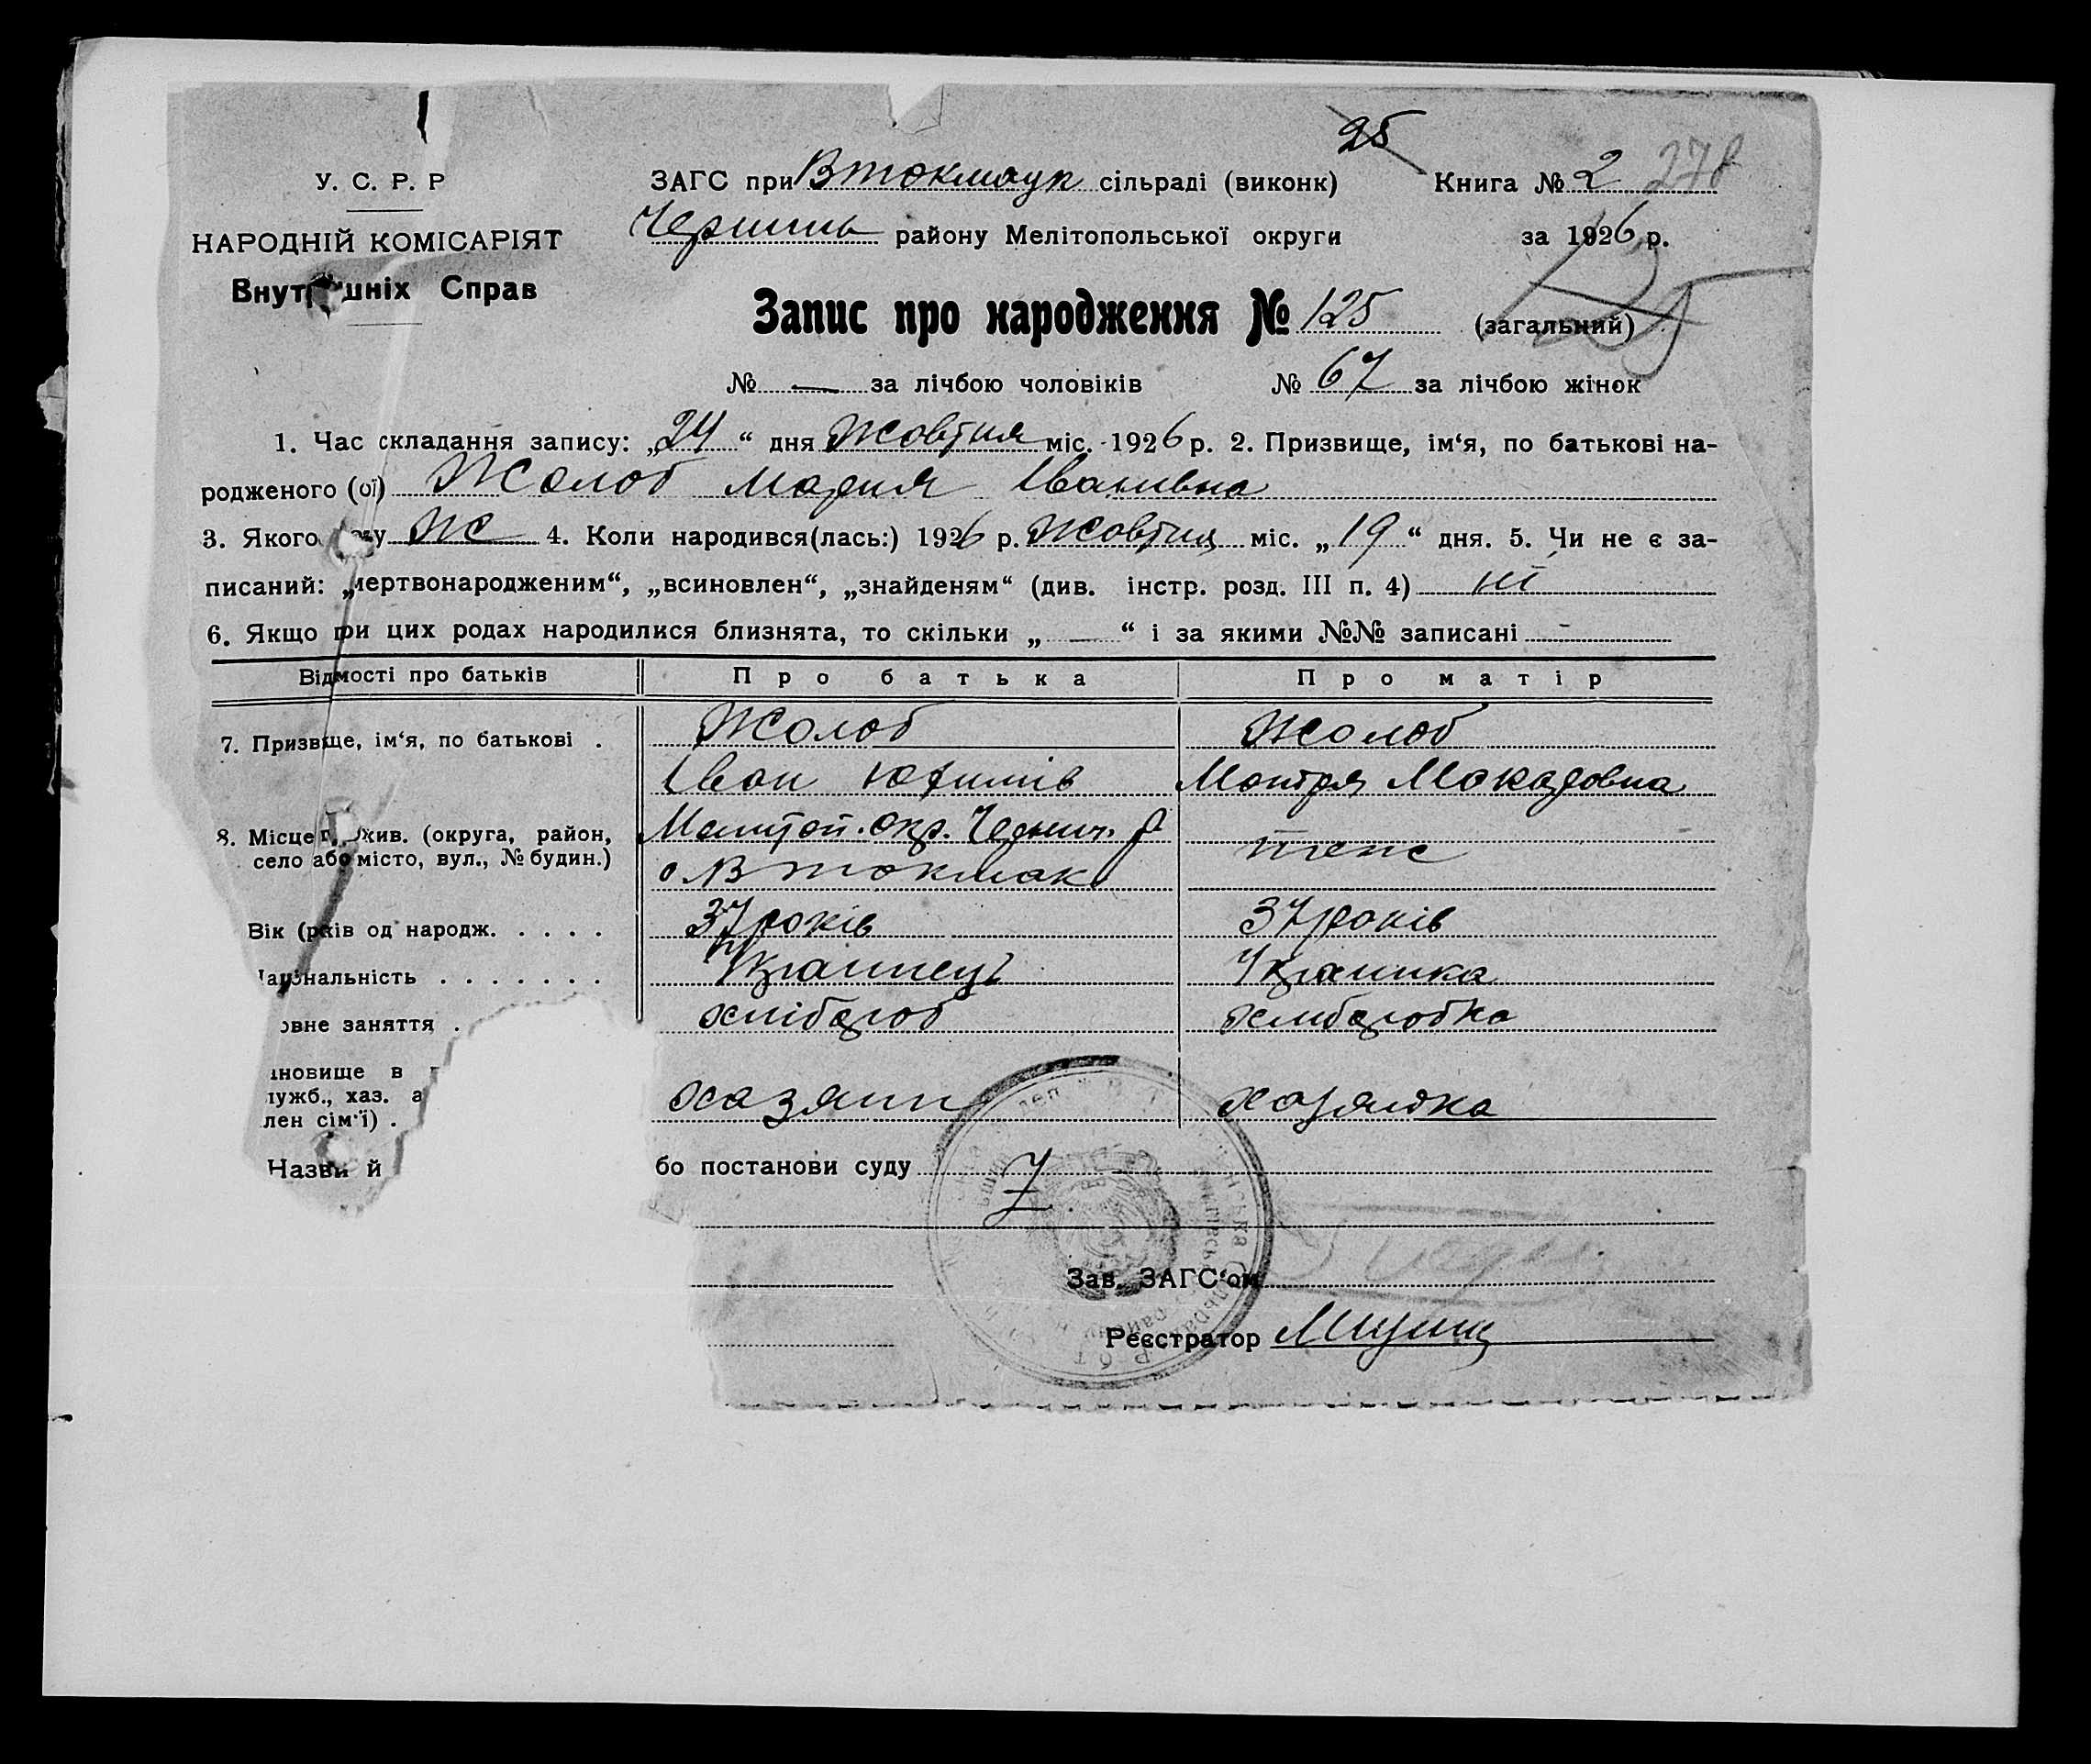 25
У. С. Р. Р
ЗАГС при Втокмацк сільраді (виконк) Книга № 2 278
НАРОДНІЙ КОМІСАРІЯТ
району Мелітопольської округи за 1926 р.
Внут шніх Справ
125
Запис про народження № 125 (загальний)
№ — за лічбою чоловіків № 67 за лічбою жінок
1. Час складання запису: „24“ дня Жовтня міс. 1926 р. 2. Призвище, ім‘я, по батькові на-
родженого (ої) Жолоб Мария Іванивна
3. Якого у Ж 4. Коли народився(лась:) 1926 р. Жовтня міс. „19“ дня. 5. Чи не є за-
писаний: „мертвонародженим“, „всиновлен“, „знайденям“ (див. інстр. розд. III п. 4) ні
6. Якщо при цих родах народилися близнята, то скільки „ — “ і за якими №№ записані -
Відмості про батьків Про батька Про матір
7. Призвище, ім‘я, по батькові . Жолоб Жолоб
Іван Юхимів Мотря Макаровна
8. Місце прожив. (округа, район, Мелітоп. окр. Черниг. р
село або місто, вул., № будин.) с В Токмак теж
Вік (років од народж. . . . . 37 років 37 років
аціональність . . . . . . . Українець Українка
овне заняття . хлібороб хлиборобка
ановище в
лужб., хаз. а хазяин хозяйка
лен сім‘ї) .
Назви й бо постанови суду
Зав. ЗАГС‘ом
Реєстратор